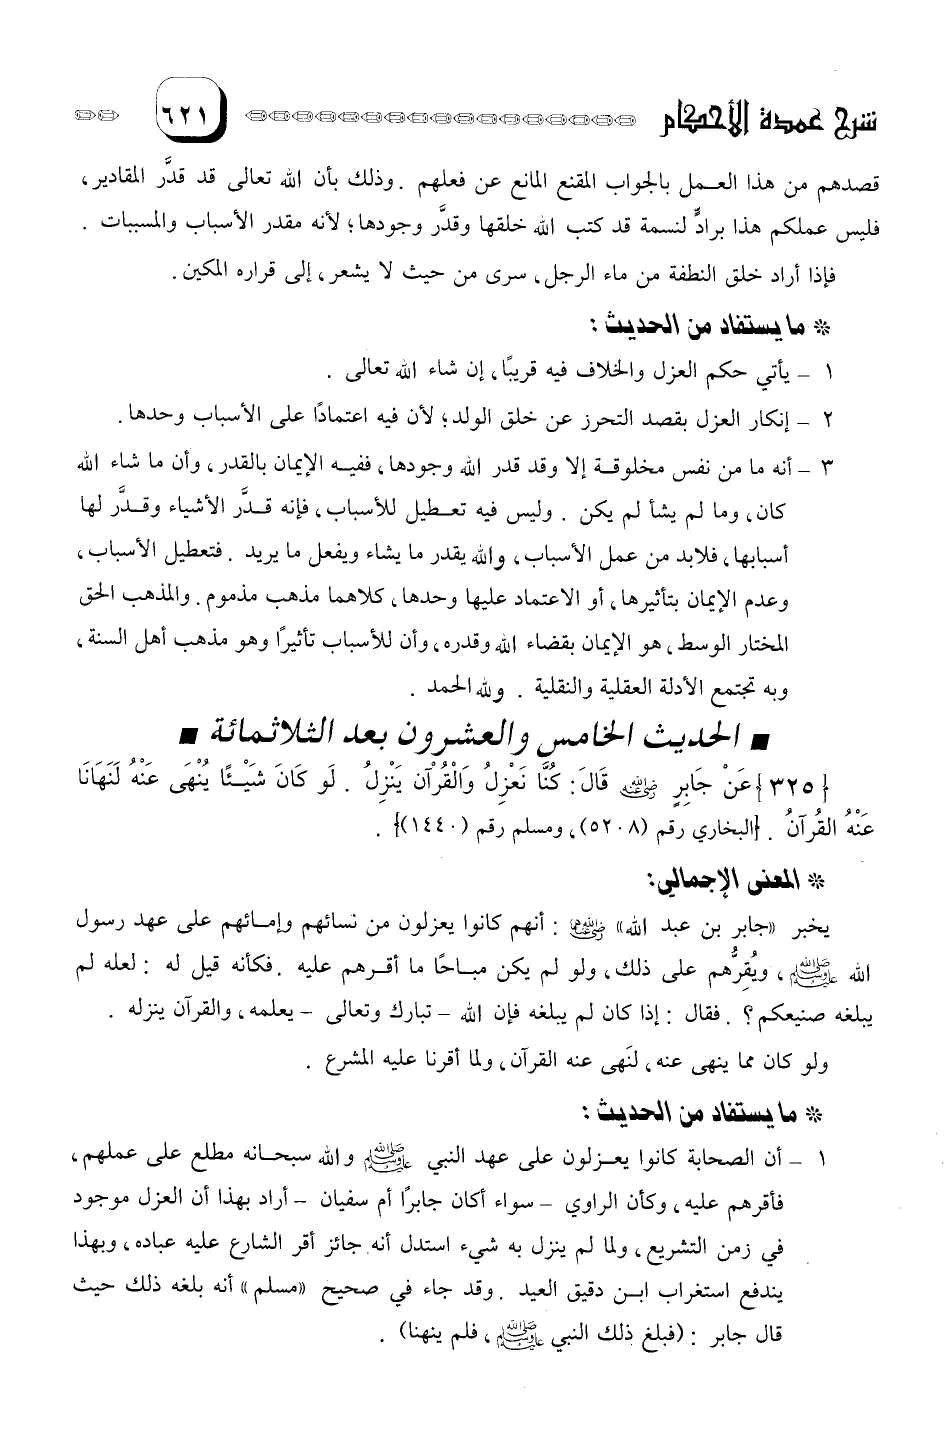 شرح عمدة الأحكام ٦٢١
قصدهم من هذا العمل بالجواب المقنع المانع عن فعلهم. وذلك بأن الله تعالى قد قدَّر المقادير،
فليس عملكم هذا برادٍّ لنسمة قد كتب الله خلقها وقدَّر وجودها؛ لأنه مقدر الأسباب والمسببات.
فإذا أراد خلق النطفة من ماء الرجل، سرى من حيث لا يشعر، إلى قراره المكين.
* ما يستفاد من الحديث:
١ - يأتي حكم العزل والخلاف فيه قريبًا، إن شاء الله تعالى.
٢ - إنكار العزل بقصد التحرز عن خلق الولد؛ لأن فيه اعتمادًا على الأسباب وحدها.
٣ - أنه ما من نفس مخلوقة إلا وقد قدر الله وجودها، ففيه الإيمان بالقدر، وأن ما شاء الله
كان، وما لم يشأ لم يكن. وليس فيه تعطيل للأسباب، فإنه قدَّر الأشياء وقدَّر لها
أسبابها، فلابد من عمل الأسباب، والله يقدر ما يشاء ويفعل ما يريد. فتعطيل الأسباب،
وعدم الإيمان بتأثيرها، أو الاعتماد عليها وحدها، كلاهما مذهب مذموم. والمذهب الحق
المختار الوسط، هو الإيمان بقضاء الله وقدره، وأن للأسباب تأثيرًا وهو مذهب أهل السنة،
وبه تجتمع الأدلة العقلية والنقلية. ولله الحمد.
■ الحديث الخامس والعشرون بعد الثلاثمائة ■
{٣٢٥} عَنْ جَابِرٍ رضي الله عنه قَالَ: كُنَّا نَعْزِلُ وَالْقُرْآن يَنْزِلُ. لَو كَانَ شَيْئًا يُنْهَى عَنْهُ لَنَهَانَا
عَنْهُ القُرآنُ. {البخاري رقم (٥٢٠٨)، ومسلم رقم (١٤٤٠)}.
* المعنى الإجمالي:
يخبر «جابر بن عبد الله» رضي الله عنهما: أنهم كانوا يعزلون من نسائهم وإمائهم على عهد رسول
الله ﷺ، ويُقِرُّهم على ذلك، ولو لم يكن مباحًا ما أقرهم عليه. فكأنه قيل له: لعله لم
يبلغه صنيعكم؟. فقال: إذا كان لم يبلغه فإن الله - تبارك وتعالى - يعلمه، والقرآن ينزله.
ولو كان مما ينهى عنه، لنَهى عنه القرآن، ولما أقرنا عليه المشرع.
* ما يستفاد من الحديث:
١ - أن الصحابة كانوا يعزلون على عهد النبي ﷺ والله سبحانه مطلع على عملهم،
فأقرهم عليه، وكأن الراوي - سواء أكان جابرًا أم سفيان - أراد بهذا أن العزل موجود
في زمن التشريع، ولما لم ينزل به شيء استدل أنه جائز أقر الشارع عليه عباده، وبهذا
يندفع استغراب ابن دقيق العيد. وقد جاء في صحيح «مسلم» أنه بلغه ذلك حيث
قال جابر: (فبلغ ذلك النبي ﷺ، فلم ينهنا).